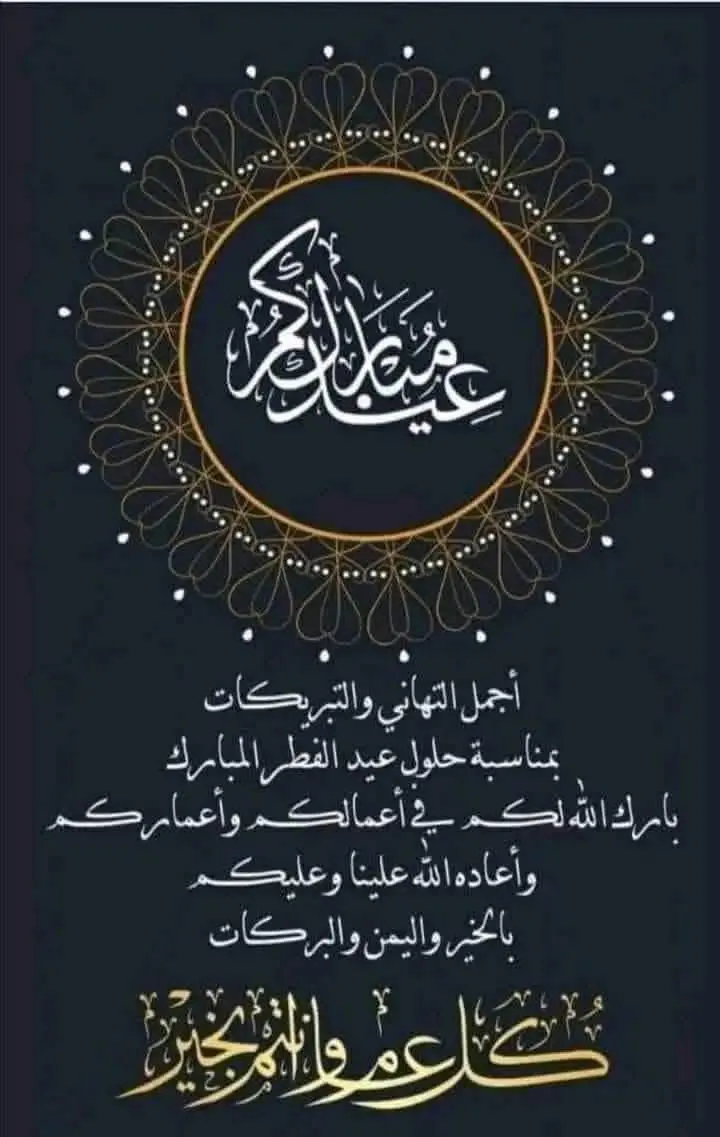 عيدكم مبارك
أجمل التهاني والتبريكات
بمناسبة حلول عيد الفطر المبارك
بارك الله لكم في أعمالكم وأعماركم
وأعاده الله علينا وعليكم
بالخير واليمن والبركات
كل عام وانتم بخير